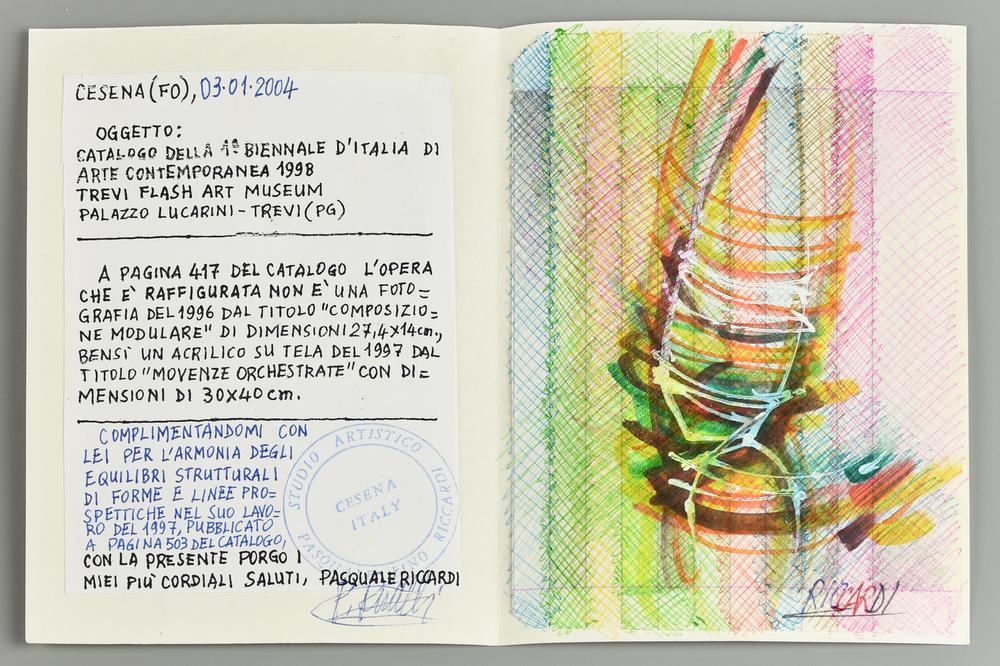 CESENA (FO), 03·01·2004
OGGETTO:
CATALOGO DELLA 1ª BIENNALE D'ITALIA DI
ARTE CONTEMPORANEA 1998
TREVI FLASH ART MUSEUM
PALAZZO LUCARINI - TREVI (PG)
A PAGINA 417 DEL CATALOGO L'OPERA
CHE E' RAFFIGURATA NON E' UNA FOTO=
GRAFIA DEL 1996 DAL TITOLO "COMPOSIZIO=
NE MODULARE" DI DIMENSIONI 27,4x14cm.,
BENSÌ UN ACRILICO SU TELA DEL 1997 DAL
TITOLO "MOVENZE ORCHESTRATE" CON DI=
MENSIONI DI 30x40 cm.
COMPLIMENTANDOMI CON
LEI PER L'ARMONIA DEGLI
EQUILIBRI STRUTTURALI
DI FORME E LINEE PRO=
SPETTICHE NEL SUO LAVO=
RO DEL 1997, PUBBLICATO
A PAGINA 503 DEL CATALOGO,
CON LA PRESENTE PORGO I
MIEI PIÙ CORDIALI SALUTI, PASQUALE RICCARDI
STUDIO ARTISTICO
RICCARDI
CESENA
ITALY
RICCARDI